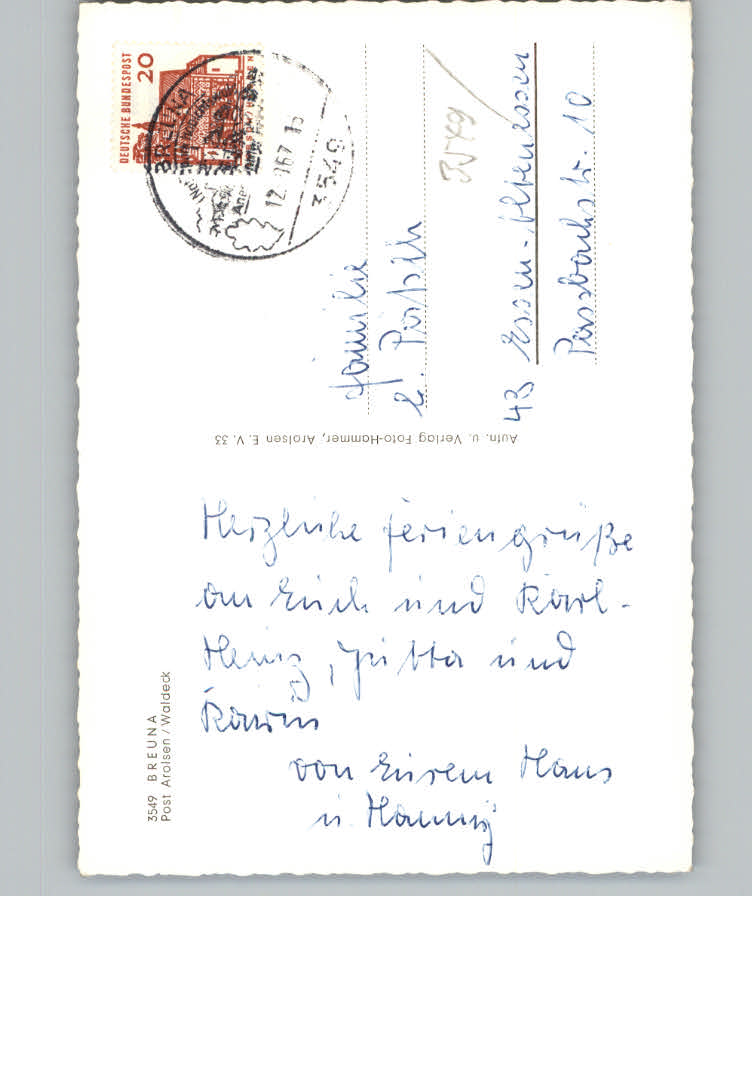 DEUTSCHE BUNDESPOST
20
BREUNA
3549
Familie
43 Essen-Altenessen
10
3579
Aufn. u. Verlag Foto-Hammer, Arolsen E. V. 33
Herzliche Feriengrüße
an Euch und Karl-
Heinz, Jutta und
Karin
von Eurem Hans
u. Hanny
3549 BREUNA
Post Arolsen/Waldeck